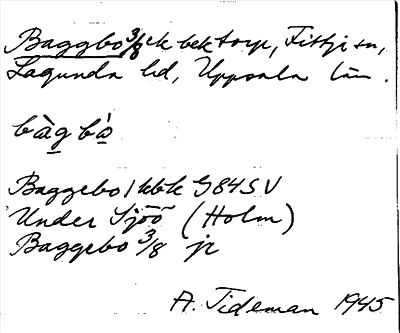 Baggbo 3/8 ek bektorp, Fittja sn,
Lagunda hd, Uppsala län.
bàg bò
Baggebo 1 kbk G845V
Under Sjöö (Holm)
Baggebo 3/8 jr
A. Tideman 1945